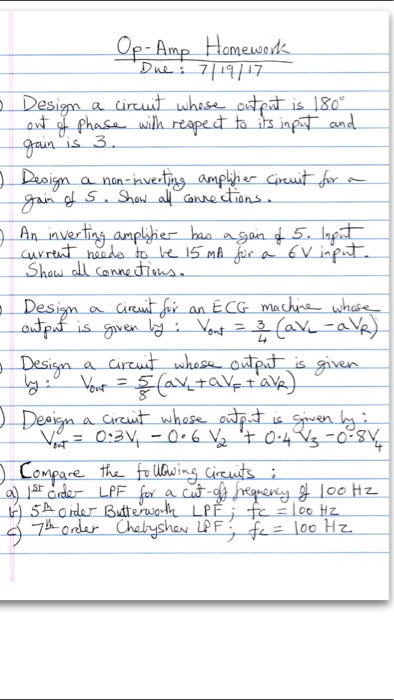 Op-Amp Homework
Due: 7/19/17
Design a circuit whose output is 180°
out of phase with respect to its input and
gain is 3.
Design a non-inverting amplifier circuit for a
gain of 5. Show all connections.
An inverting amplifier has a gain of 5. Input
current needs to be 15 mA for a 6V input.
Show all connections.
Design a circuit for an ECG machine whose
output is given by: Vout = 3/4 (aVL - aVR)
Design a circuit whose output is given
by: Vout = 5/8 (aVL + aVF + aVR)
Design a circuit whose output is given by:
Vout = 0.3V1 - 0.6 V2 + 0.4 V3 - 0.8V4
Compare the following circuits:
a) 1st order LPF for a cut-off frequency of 100 Hz
b) 5th order Butterworth LPF; fc = 100 Hz
c) 7th order Chebyshev LPF; fc = 100 Hz